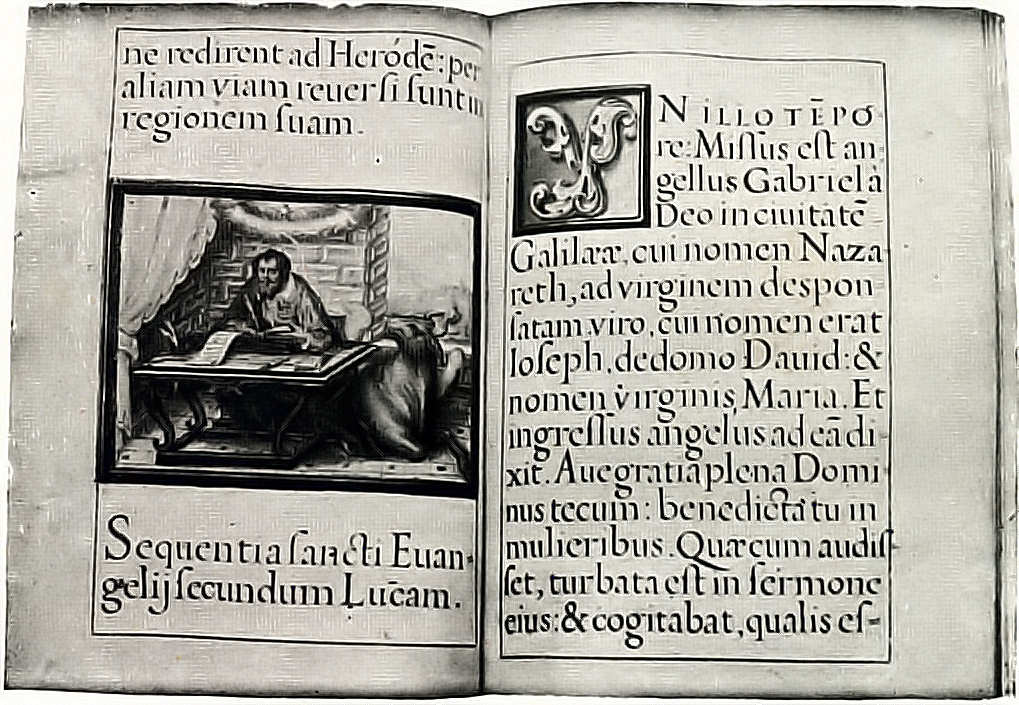 ne redirent ad Heródē: per
aliam viam reuerſi ſunt in
regionem ſuam.
Sequentia ſancti Euan-
gelij ſecundum Lucam.
IN ILLO TĒPO-
re: Miſſus eſt an-
gellus Gabriel à
Deo in ciuitatē
Galilææ, cui nomen Naza-
reth, ad virginem deſpon-
ſatam viro, cui nomen erat
Ioſeph, de domo Dauid: &
nomen virginis Maria. Et
ingreſſus angelus ad eā di-
xit. Aue gratia plena Domi-
nus tecum: benedicta tu in
mulieribus. Quæ cum audiſ-
ſet, turbata eſt in ſermone
eius: & cogitabat, qualis eſ-